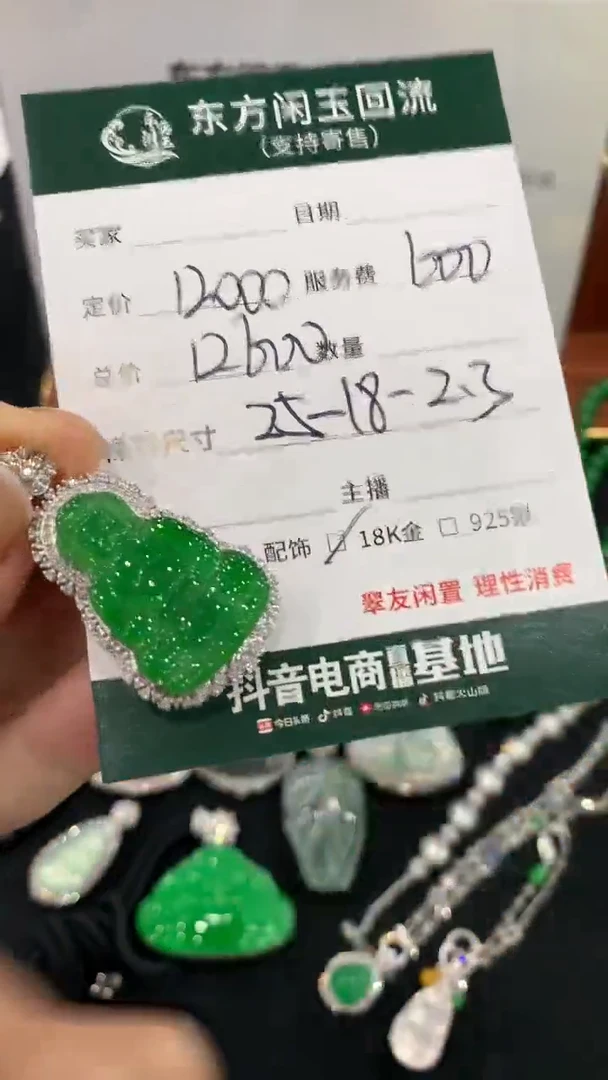 东方闲玉回流
(支持寄售)
买家 日期
定价 12000 服务费 600
总价 12600 数量
尺寸 25-18-2.3
主播
配饰 18K金 925银
翠友闲置 理性消费
抖音电商直播基地
今日头条 抖音 抖音火山版